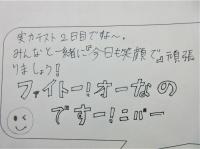 実力テスト2日目ですね〜。
みんなと一緒に『今日も笑顔で』頑張
りましょう!
ファイトー!オーなの
ですー!ニパー